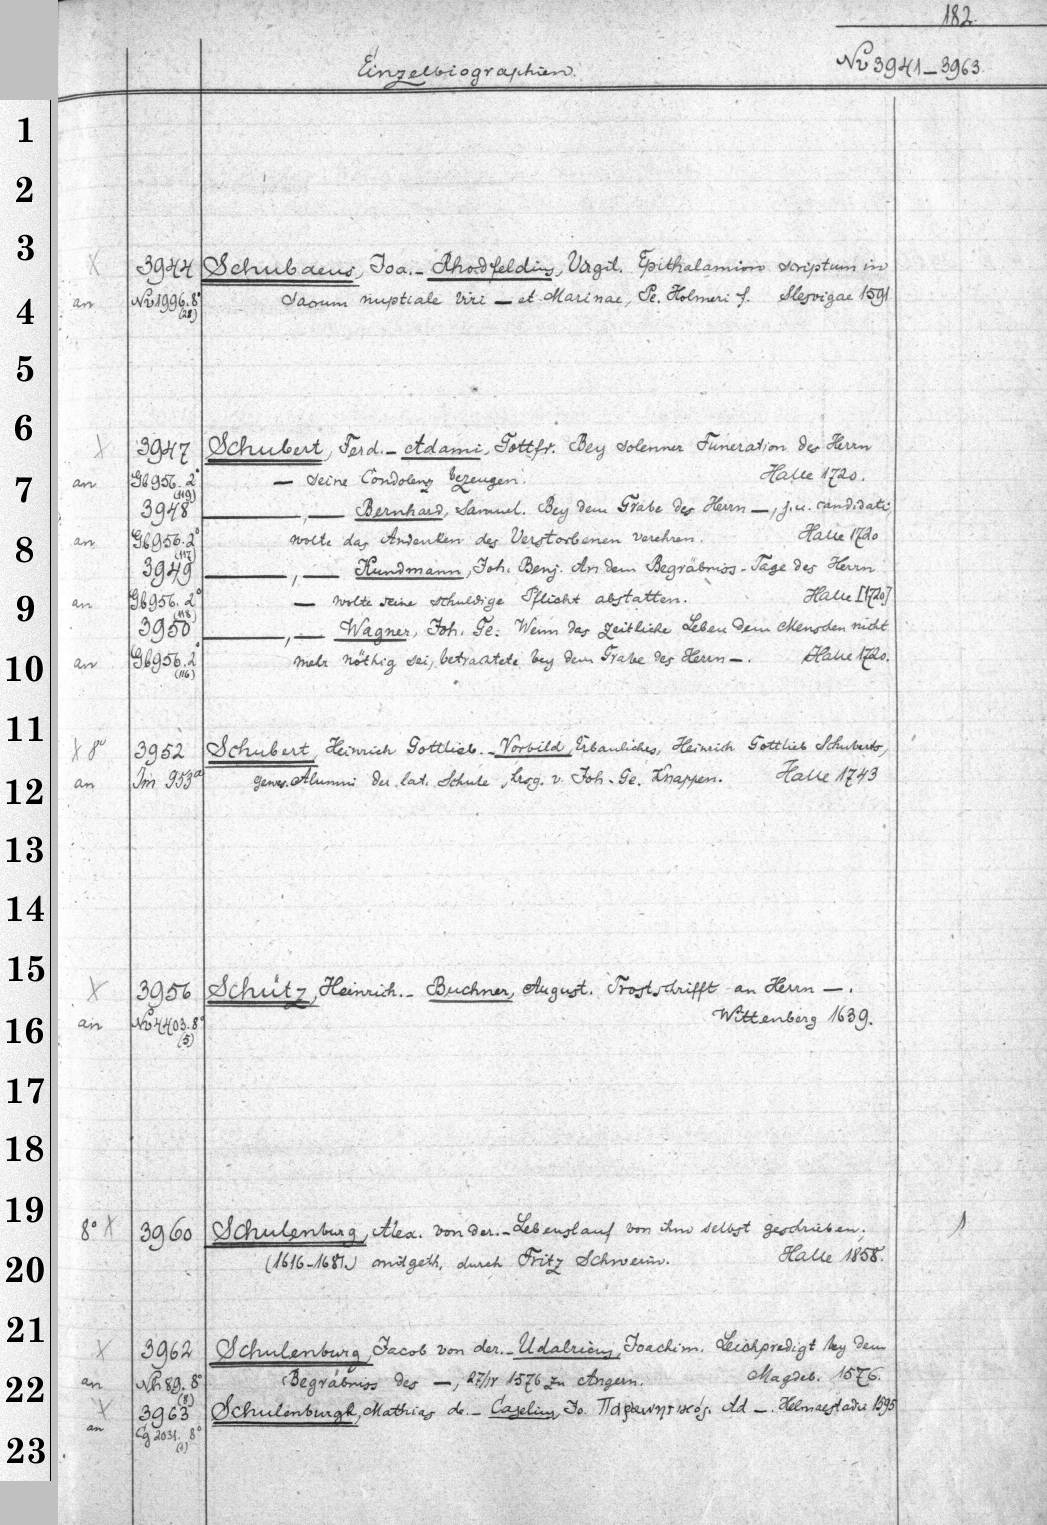 182
Einzelbiographien.
Nr 3941-3963
1
2
3
X 3944 Schubaeus, Joa. - Rhodfeldius, Virgil. Epithalamion scriptum in
an Nv 1996.8° (28) sacrum nuptiale viri — et Marinae, Pe. Holmeri f. Slesvigae 1591
4
5
6
X 3947 Schubert, Ferd. - Adami, Gottfr. Bey solenner Funeration des Herrn
an Gb 956.2° (119) — seine Condolenz bezeugen. Halle 1720.
7
3948 ———, — Bernhard, Samuel. Bey dem Grabe des Herrn —, j.u. candidati
an Gb 956.2° (117) wolte das Andenken des Verstorbenen verehren. Halle 1720
8
3949 ———, — Kundmann, Joh. Benj. An dem Begräbniss-Tage des Herrn
an Gb 956.2° (118) — wolte seine schuldige Pflicht abstatten. Halle [1720]
9
3950 ———, — Wagner, Joh. Ge. Wenn das zeitliche Leben dem Menschen nicht
an Gb 956.2° (116) mehr nöthig sei, betrachtete bey dem Grabe des Herrn —. Halle 1720.
10
11
X 8° 3952 Schubert, Heinrich Gottlieb. - Vorbild, Erbauliches, Heinrich Gottlieb Schuberts,
an Im 953a gewes. Alumni der lat. Schule, hrsg. v. Joh. Ge. Knappen. Halle 1743
12
13
14
15
X 3956 Schütz, Heinrich. - Buchner, August. Trostschrifft an Herrn —.
an Nv 4403.8° (5) Wittenberg 1639.
16
17
18
19
8° X 3960 Schulenburg, Alex. von der. - Lebenslauf von ihm selbst geschrieben,
(1616-1681.) mitgeth. durch Fritz Schwerin. Halle 1858.
20
1
21
X 3962 Schulenburg, Jacob von der. - Udalricus, Joachim. Leichpredigt bey dem
an Nh 89.8° (8) Begräbniss des —, 27/IV 1576 zu Angern. Magdeb. 1576.
22
X 3963 Schulenburgk, Mathias de. - Caselius, Jo. Παραινητικός. Ad —. Helmaestadii 1595
an Cg 2031.8° (1)
23